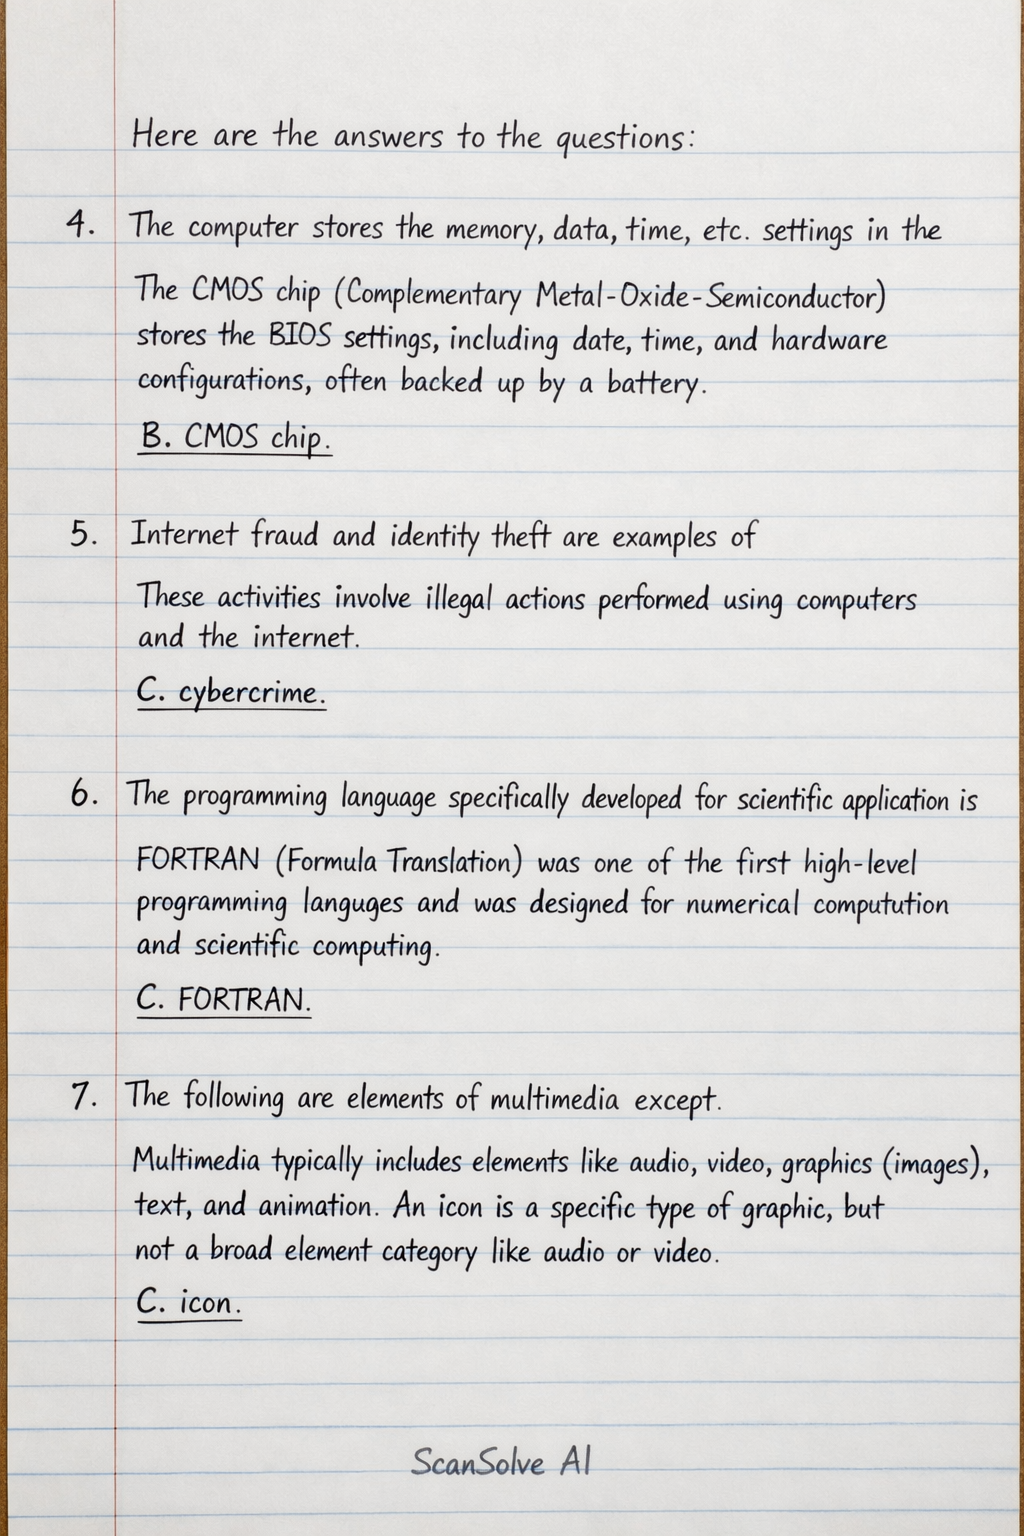 Here are the answers to the questions:
4. The computer stores the memory, data, time, etc. settings in the
The CMOS chip (Complementary Metal-Oxide-Semiconductor)
stores the BIOS settings, including date, time, and hardware
configurations, often backed up by a battery.
B. CMOS chip.
5. Internet fraud and identity theft are examples of
These activities involve illegal actions performed using computers
and the internet.
C. cybercrime.
6. The programming language specifically developed for scientific application is
FORTRAN (Formula Translation) was one of the first high-level
programming languges and was designed for numerical computution
and scientific computing.
C. FORTRAN.
7. The following are elements of multimedia except.
Multimedia typically includes elements like audio, video, graphics (images),
text, and animation. An icon is a specific type of graphic, but
not a broad element category like audio or video.
C. icon.
ScanSolve AI